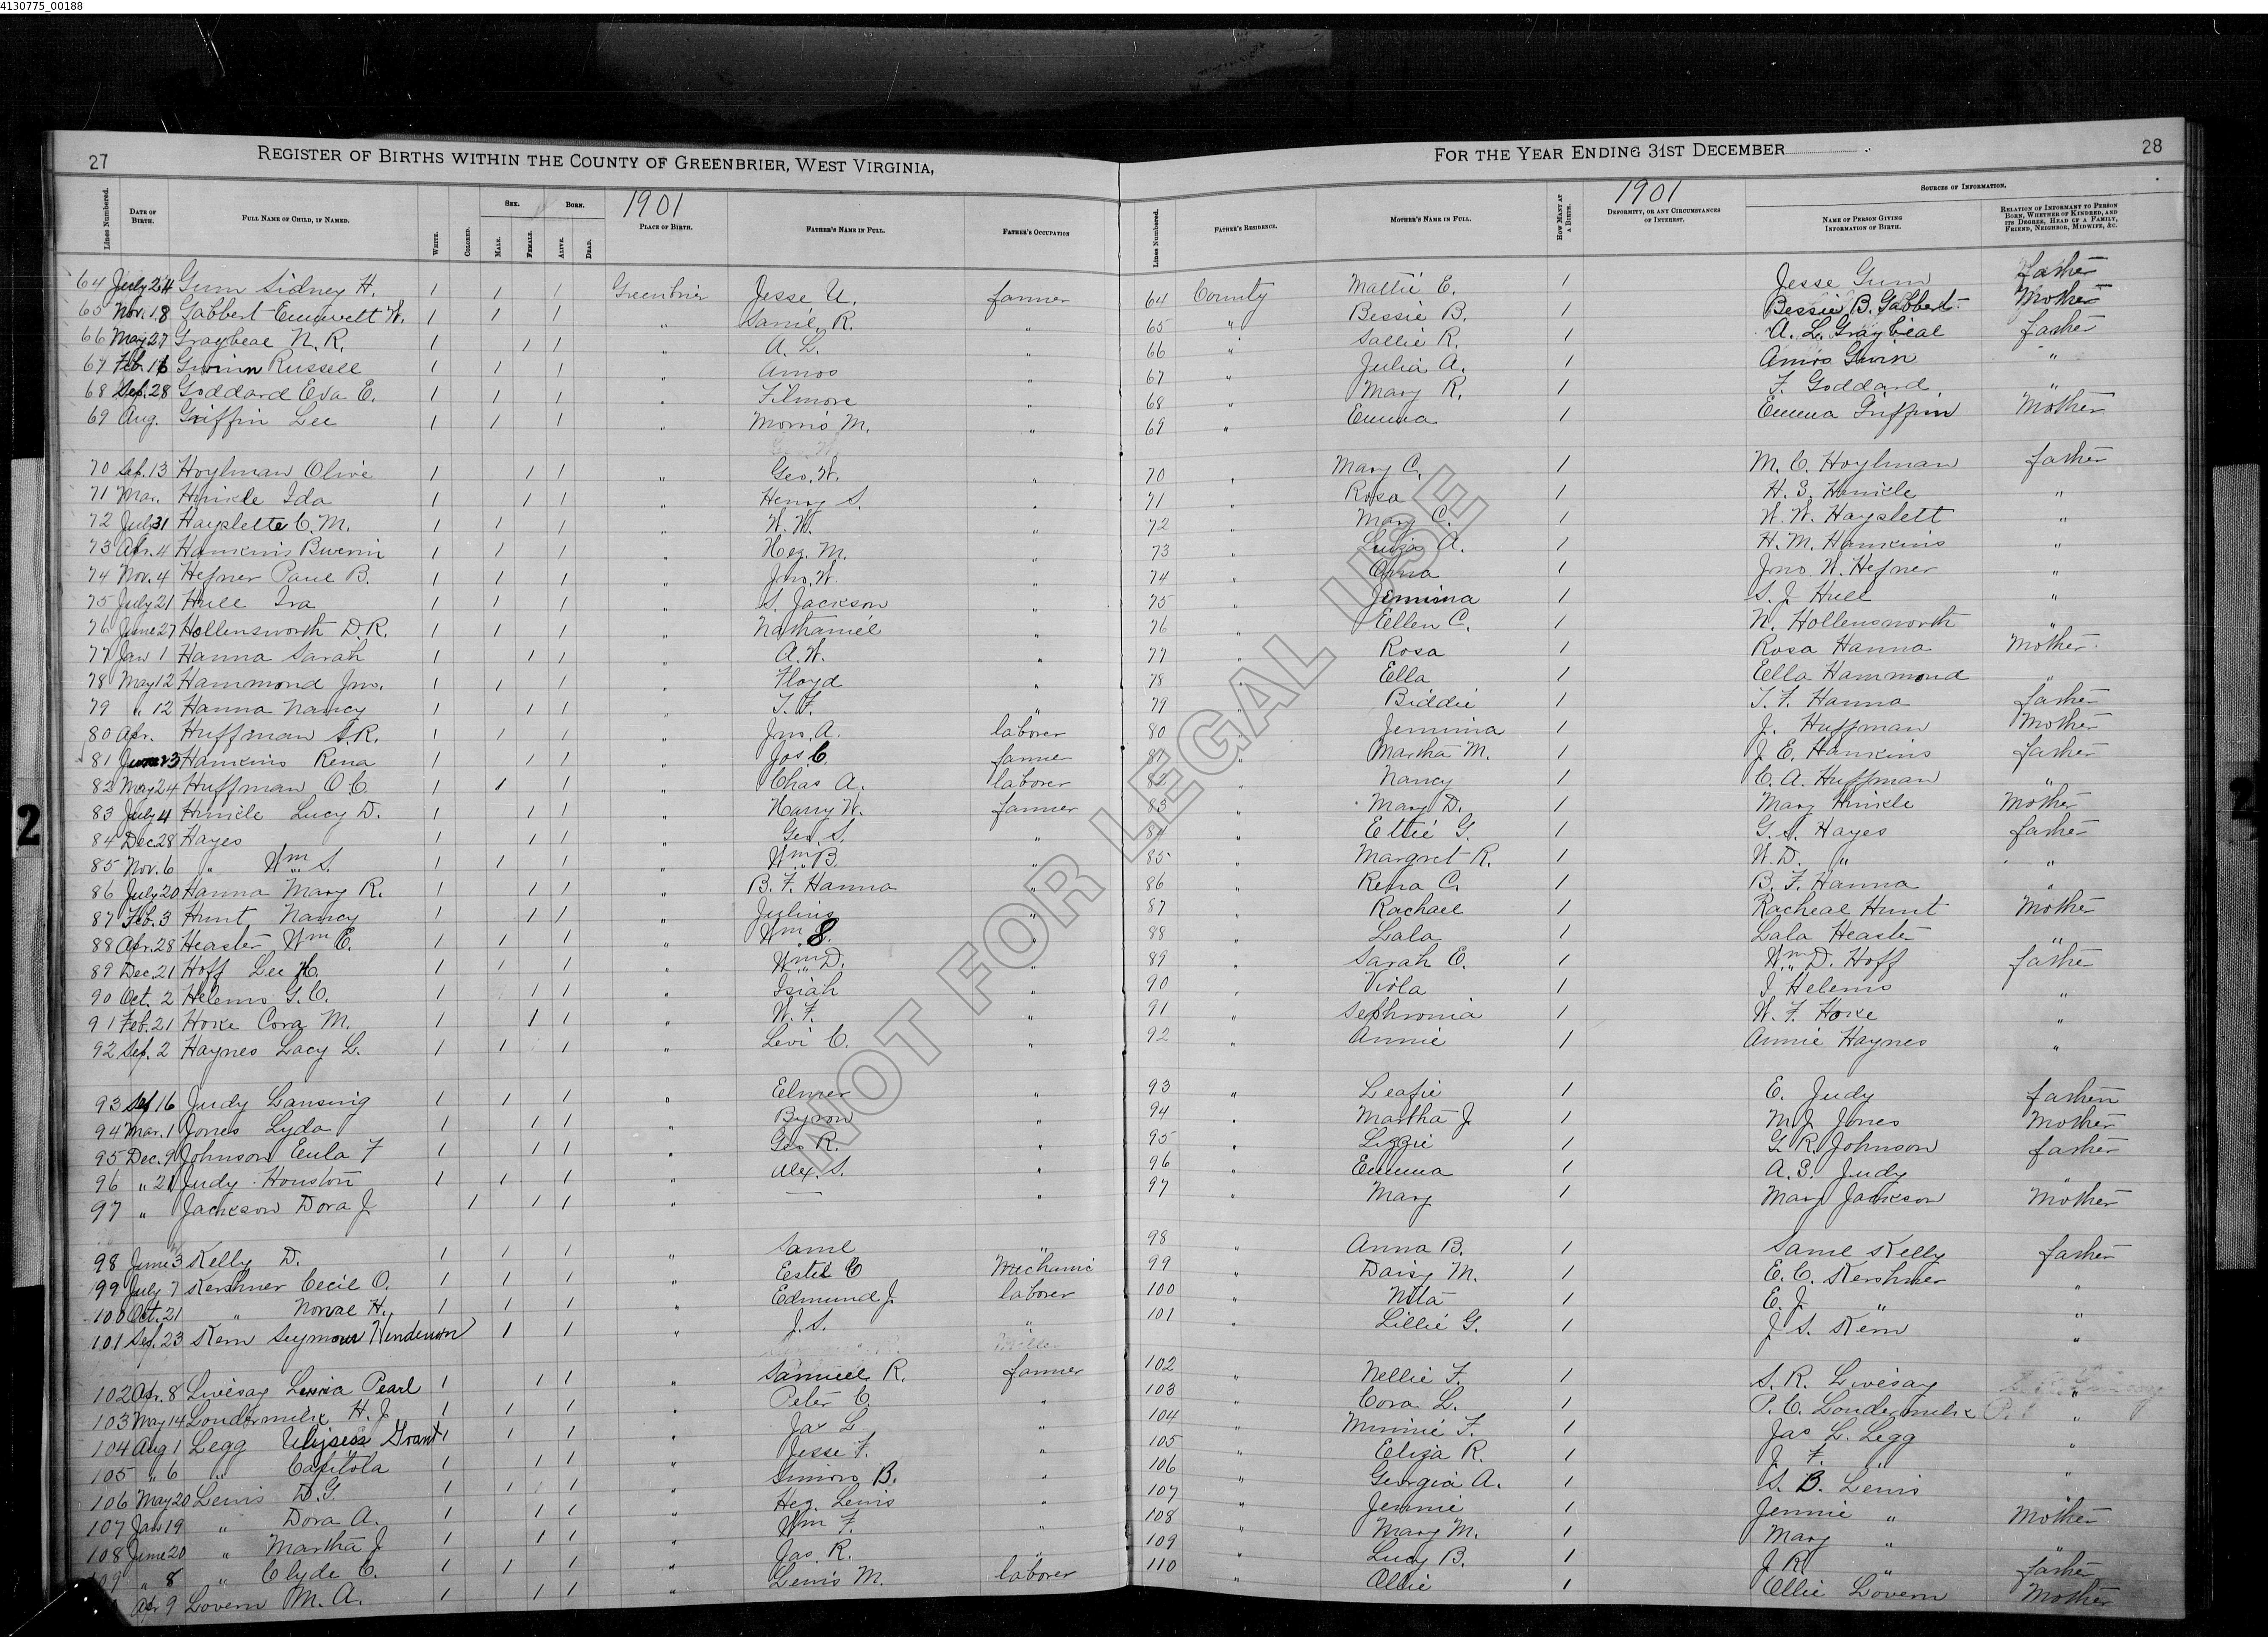 4130775_00188
27 REGISTER OF BIRTHS WITHIN THE COUNTY OF GREENBRIER, WEST VIRGINIA,
FOR THE YEAR ENDING 31ST DECEMBER 28
1901
1901
Lines Numbered. DATE OF BIRTH. FULL NAME OF CHILD, IF NAMED. WHITE. COLORED. SEX. MALE. FEMALE. BORN. ALIVE. DEAD. PLACE OF BIRTH. FATHER'S NAME IN FULL. FATHER'S OCCUPATION
Lines Numbered. FATHER'S RESIDENCE. MOTHER'S NAME IN FULL. HOW MANY AT A BIRTH. DEFORMITY, OR ANY CIRCUMSTANCES OF INTEREST. SOURCES OF INFORMATION. NAME OF PERSON GIVING INFORMATION OF BIRTH. RELATION OF INFORMANT TO PERSON BORN, WHETHER OF KINDRED, AND ITS DEGREE, HEAD OF A FAMILY, FRIEND, NEIGHBOR, MIDWIFE, &C.
64 July 24 Gum Sidney H. 1 1 1 Greenbrier Jesse U. farmer 64 County Mattie E. 1 Jesse Gum father
65 Nov. 18 Gabbert Emmett W. 1 1 1 " Saml. R. " 65 " Bessie B. 1 Bessie B. Gabbert Mother
66 May 27 Graybeal N. R. 1 1 1 " A. L. " 66 " Sallie R. 1 A. L. Graybeal father
67 Feb. 16 Gwinn Russell 1 1 1 " Amos " 67 " Julia A. 1 Amos Gwin "
68 Sep. 28 Goddard Eva E. 1 1 1 " Filmore " 68 " Mary R. 1 F. Goddard "
69 Aug. Griffin Lee 1 1 1 " Morris M. " 69 " Emma 1 Emma Griffin Mother
70 Sep. 13 Hoylman Olive 1 1 1 " Geo. W. " 70 " Mary C. 1 M. C. Hoylman father
71 Mar. Hinkle Ida 1 1 1 " Henry S. " 71 " Rosa 1 H. S. Hinkle "
72 July 31 Hayslette C. M. 1 1 1 " W. W. " 72 " Mary C. 1 W. W. Hayslett "
73 Apr. 4 Hankins 1 1 1 " Hez. M. " 73 " Luiza A. 1 H. M. Hankins "
74 Nov. 4 Hefner Paul B. 1 1 1 " Jno. W. " 74 " Anna 1 Jno W. Hefner "
75 July 21 Hull Ira 1 1 1 " S. Jackson " 75 " Jemima 1 S. J Hull "
76 June 27 Hollensworth D. R. 1 1 1 " Nathaniel " 76 " Ellen C. 1 N. Hollensworth "
77 Jan 1 Hanna Sarah 1 1 1 " A. W. " 77 " Rosa 1 Rosa Hanna Mother
78 May 12 Hammond Jno. 1 1 1 " Floyd " 78 " Ella 1 Ella Hammond "
79 " 12 Hanna Nancy 1 1 1 " T. F. " 79 " Biddie 1 T. F. Hanna father
80 Apr. Huffman S. R. 1 1 1 " Jno. A. laborer 80 " Jemima 1 J. Huffman Mother
81 June 23 Hankins Rena 1 1 1 " Jos C. farmer 81 " Martha M. 1 J. E. Hankins father
82 May 24 Huffman O C. 1 1 1 " Chas A. laborer 82 " Nancy 1 C. A. Huffman "
83 July 4 Hinkle Lucy D. 1 1 1 " Harry W. farmer 83 " Mary D. 1 Mary Hinkle Mother
84 Dec 28 Hayes 1 1 1 " Geo. S. " 84 " Ettie G. 1 G. S. Hayes father
85 Nov. 6 " Wm S. 1 1 1 " Wm B. " 85 " Margret R. 1 W. D. " "
86 July 20 Hanna Mary R. 1 1 1 " B. F. Hanna " 86 " Rena C. 1 B. F. Hanna "
87 Feb. 3 Hunt Nancy 1 1 1 " Julius " 87 " Rachael 1 Racheal Hunt Mother
88 Apr. 28 Heaster Wm E. 1 1 1 " Wm " 88 " Lala 1 Lala Heaster "
89 Dec. 21 Hoff Lee H. 1 1 1 " Wm D. " 89 " Sarah E. 1 Wm D. Hoff father
90 Oct. 2 Helems G. C. 1 1 1 " Isiah " 90 " Viola 1 I Helems "
91 Feb. 21 Hoke Cora M. 1 1 1 " W. F. " 91 " Sephronia 1 W. F. Hoke "
92 Sep. 2 Haynes Lacy L. 1 1 1 " Levi C. " 92 " Annie 1 Annie Haynes "
93 Sep 16 Judy Lansing 1 1 1 " Elmer " 93 " Leafie 1 E. Judy father
94 Mar. 1 Jones Lyda 1 1 1 " Byron " 94 " Martha J 1 M. J. Jones Mother
95 Dec. 9 Johnson Eula F 1 1 1 " Geo R. " 95 " Lizzie 1 G. R. Johnson father
96 " 21 Judy Houston 1 1 1 " Alex. S. " 96 " Emma 1 A. S. Judy "
97 " Jackson Dora J 1 1 1 " — " 97 " Mary 1 Mary Jackson Mother
98 June 3 Kelly D. 1 1 1 " Saml " 98 " Anna B. 1 Saml Kelly father
99 July 7 Kershner Cecil O. 1 1 1 " Estel C Mechanic 99 " Daisy M. 1 E. C. Kershner "
100 Oct. 21 " Norval H. 1 1 1 " Edmund J. laborer 100 " Nita 1 E. J. " "
101 Sep. 23 Kern Seymour Henderson 1 1 " J. S. " 101 " Lillie G. 1 J. S. Kern "
102 Apr. 8 Livesay Pearl 1 1 1 " Samuel R. farmer 102 " Nellie F. 1 S. R. Livesay "
103 May 14 Loudermilk H. J. 1 1 1 " Peter C. " 103 " Cora L. 1 P. C. Loudermilk "
104 Aug 1 Legg Ulysess Grant 1 1 1 " Jas L " 104 " Minnie F. 1 Jas L. Legg "
105 " 6 " Capitola 1 1 1 " Jesse F. " 105 " Eliza R. 1 J. F. " "
106 May 20 Lewis D. G. 1 1 1 " Simions B. " 106 " Georgia A. 1 S. B. Lewis "
107 Jan 19 " Dora A. 1 1 1 " Hez. Lewis " 107 " Jennie 1 Jennie " Mother
108 June 20 " Martha J 1 1 1 " Wm F. " 108 " Mary M. 1 Mary " "
109 " 8 " Clyde C. 1 1 1 " Jas. R. " 109 " Lucy B. 1 J. R. " father
Apr 9 Lovern M. A. 1 1 1 " Lewis M. laborer 110 " Ollie 1 Ollie Lovern Mother
NOT FOR LEGAL USE
2
2